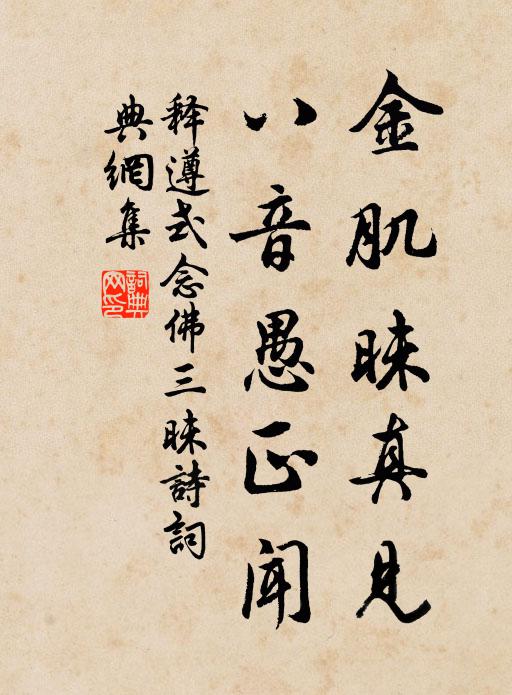 金肌昧真見
八音愚正聞
释遵式念佛三昧詩詞
典網集
詞典網印